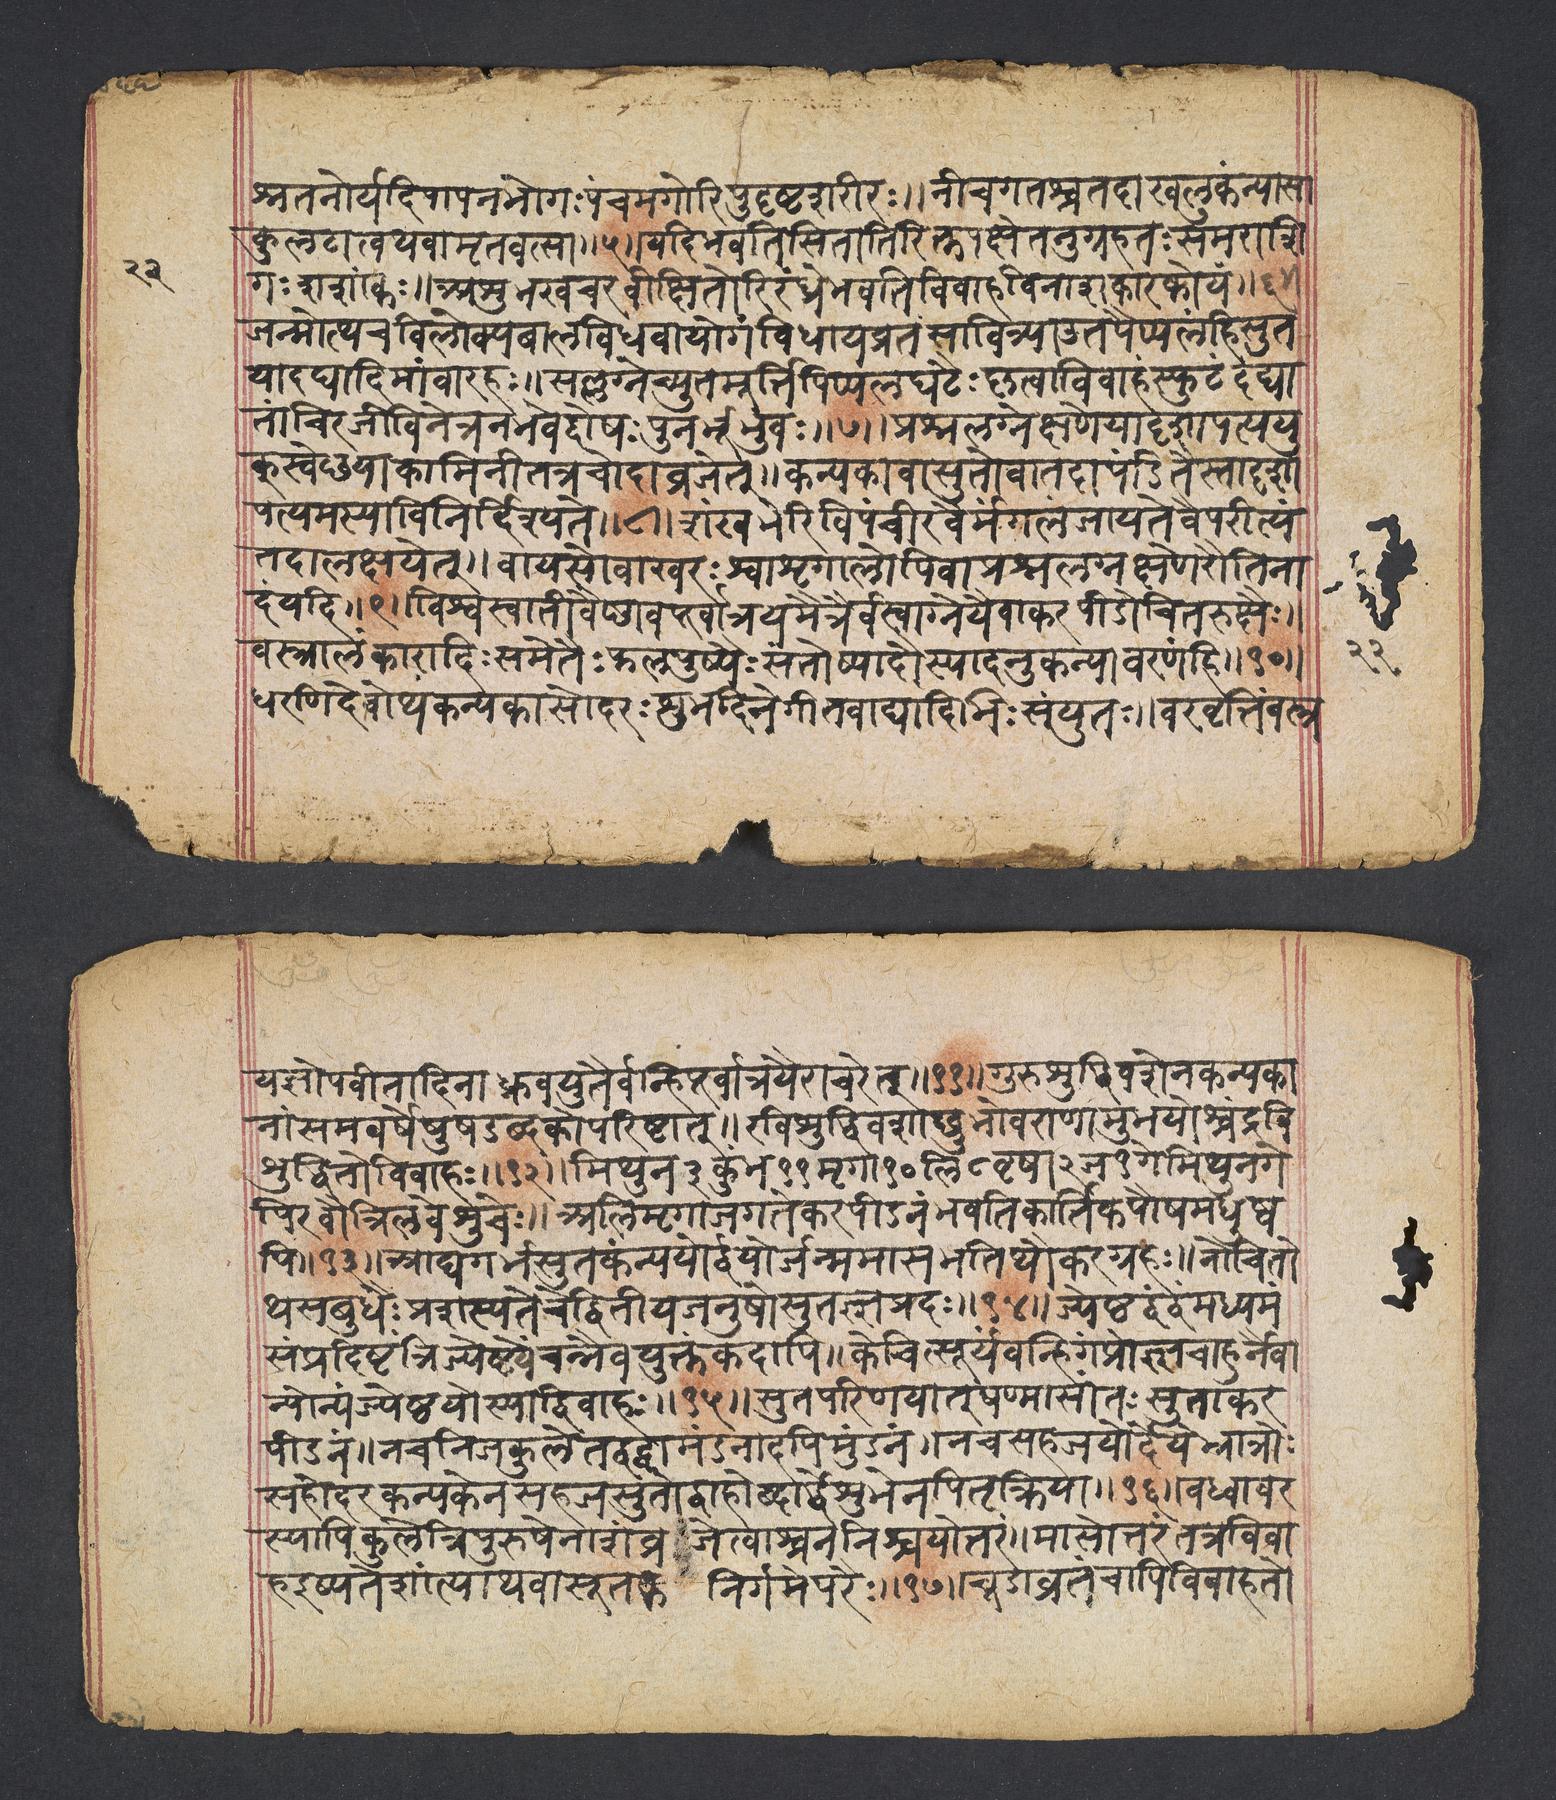 श्नतनोर्यदिपापनभोगःपंचमगोरिपुदृष्टशरीरः॥नीचगतश्चतदाखलुकंन्यासा
कुलटात्वथवामृतवत्सा॥५॥यदिभवतिसितातिरिक्तपक्षेतनुग्रहतःसमराशि
गःशशांकः॥अशुभखचरवीक्षितोरिरंध्रेभवतिविवाहविनाशकारकोयं॥६॥
२३
जन्मोत्थंचविलोक्यबालविधवायोगंविधायव्रतंसावित्र्याउतपैप्पलंहिसुत
यादद्यादिमांवारहः॥सल्लग्नेच्युतमूर्त्तिपिप्पलघटैःकृत्वाविवाहंस्फुटंदद्या
तांचिरजीविनेत्रनभवेद्दोषःपुनर्भूभुवः॥७॥प्रश्नलग्नेक्षणेयादृशापत्ययु
क्स्वेछयाकामिनीतत्रचेदाव्रजेत्॥कन्यकावासुतोवातदापंडितैस्तादृशा
पत्यमस्याविनिर्दिश्यते॥८॥शंखभेरिविपंचीरवैर्मंगलंजायतेवैपरीत्यं
तदालक्षयेत्॥वायसोवाखरःश्वाशृगालोपिवाप्रश्नलग्नेक्षणेरौतिना
दंयदि॥९॥विश्वस्वातीवैष्णवपूर्वात्रयमैत्रैर्वस्वाग्नेयैर्वाकरपीडोचितऋक्षैः॥
वस्त्रालंकारादिःसमेतैःफलपुष्पैःसंतोष्यादौस्यादनुकन्यावरणंहि॥१०॥
२३
धरणिदेवोथकन्यकासोदरःशुभदिनेगीतवाद्यादिभिःसंयुतः॥वरवृत्तिंवस्त्र
यज्ञोपवीतादिनाध्रुवयुतैर्वन्हिपूर्वात्रयैराचरेत्॥११॥गुरुशुद्धिवशेनकन्यका
नांसमवर्षेषुषडब्दकोपरिष्टात्॥रविशुद्धिवशाछ्छुभोवराणामुभयोश्चंद्रवि
शुद्धितोविवाहः॥१२॥मिथुन३कुंभ११मृगा१०लि८वृषा२ज१गेमिथुनगे
पिरवौत्रिलवेशुचेः॥अलिमृगाजगतेकरपीडनंभवतिकार्तिकपौषमधुष्व
पि॥१३॥आद्यगर्भसुतकन्ययोर्द्वयोर्जन्ममासभतिथौकरग्रहः॥नोचितो
थसबुधैःप्रशस्यतेचेद्द्वितीयजनुषोसुतप्रदः॥१४॥ज्येष्ठद्वंद्वंमध्यमं
संप्रदिष्टंत्रिज्येष्ठ्यंचेन्नैवयुक्तंकदापि॥केचित्सूर्यंवन्हिगंप्रोह्यचाहुर्नैवा
न्योन्यंज्येष्ठयोस्याद्विवाहः॥१५॥सुतपरिणयात्षण्मासांतःसुताकर
पीडनं॥नचनिजकुलेतद्वद्वामंडनादपिमुंडनं॥नचसहजयोर्देयेभ्रात्रोः
सहोदरकन्यकेनसहजसुतोद्वाहोब्दार्द्धेशुभेनपितृक्रिया॥१६॥वध्वावर
स्यापिकुलेत्रिपुरुषेनाशंव्रजेत्वाश्चननिश्चयोत्तरं॥मासोत्तरंतत्रविवा
हइष्यतेशांत्याथवासूतकनिर्गमेपरैः॥१७॥चूडाव्रतंचापिविवाहतो